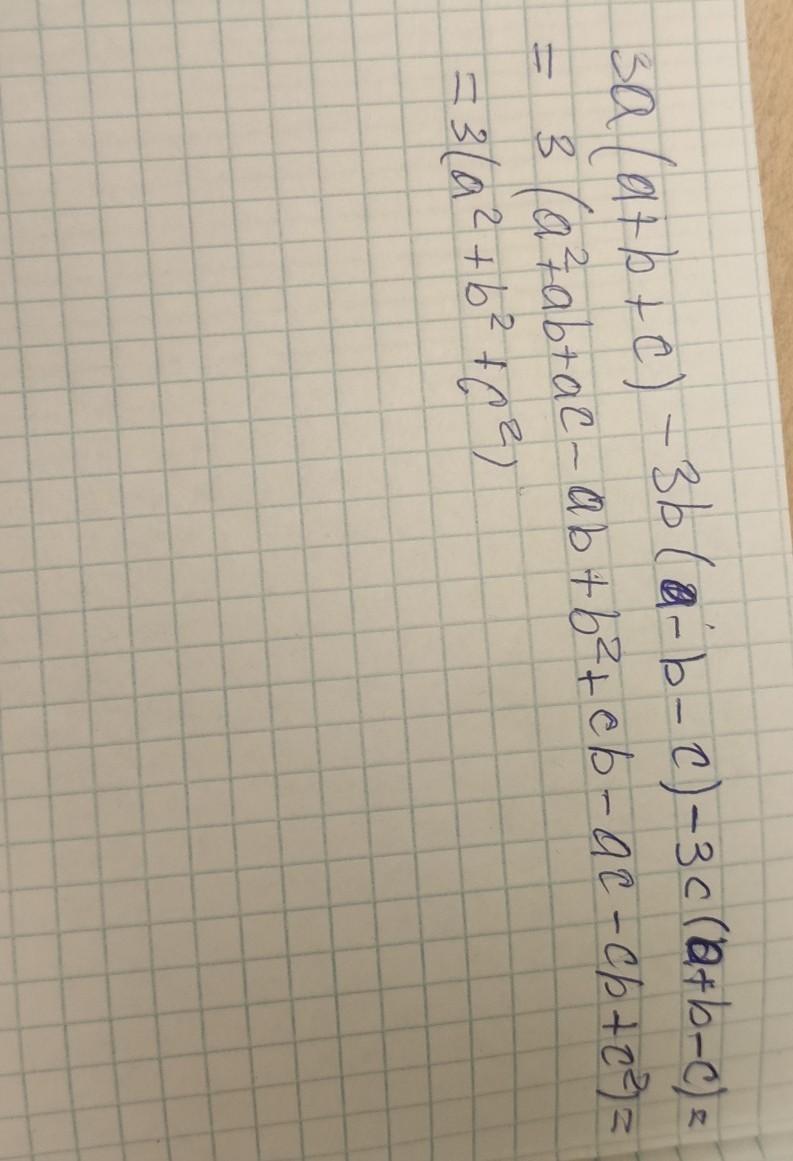 3a(a+b+c)-3b(a-b-c)-3c(a+b-c)=
= 3(a²+ab+ac-ab+b²+cb-ac-cb+c²)=
=3(a²+b²+c²)